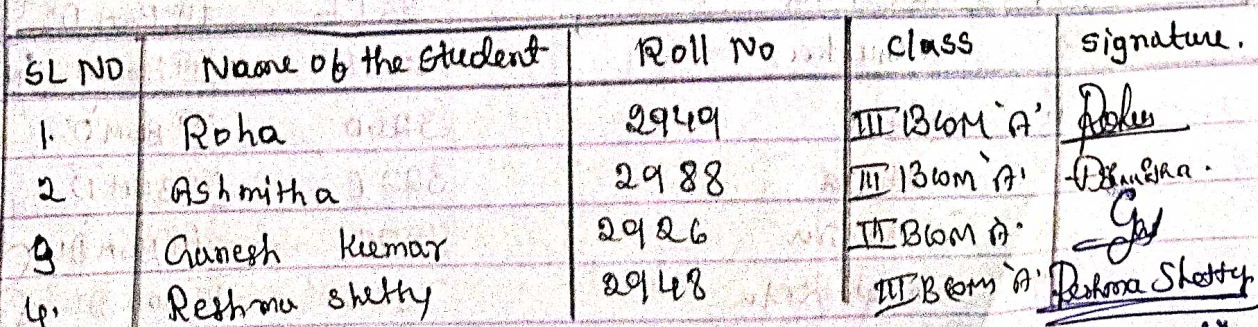 SL NO Name of the Student Roll No class signature.
1. Roha 2949 III BCOM 'A'
2 Ashmitha 2988 III BCOM 'A'
3 Ganesh Kumar 2926 III BCOM 'A'
4. Reshma Shetty 2948 III BCOM 'A' Reshma Shetty